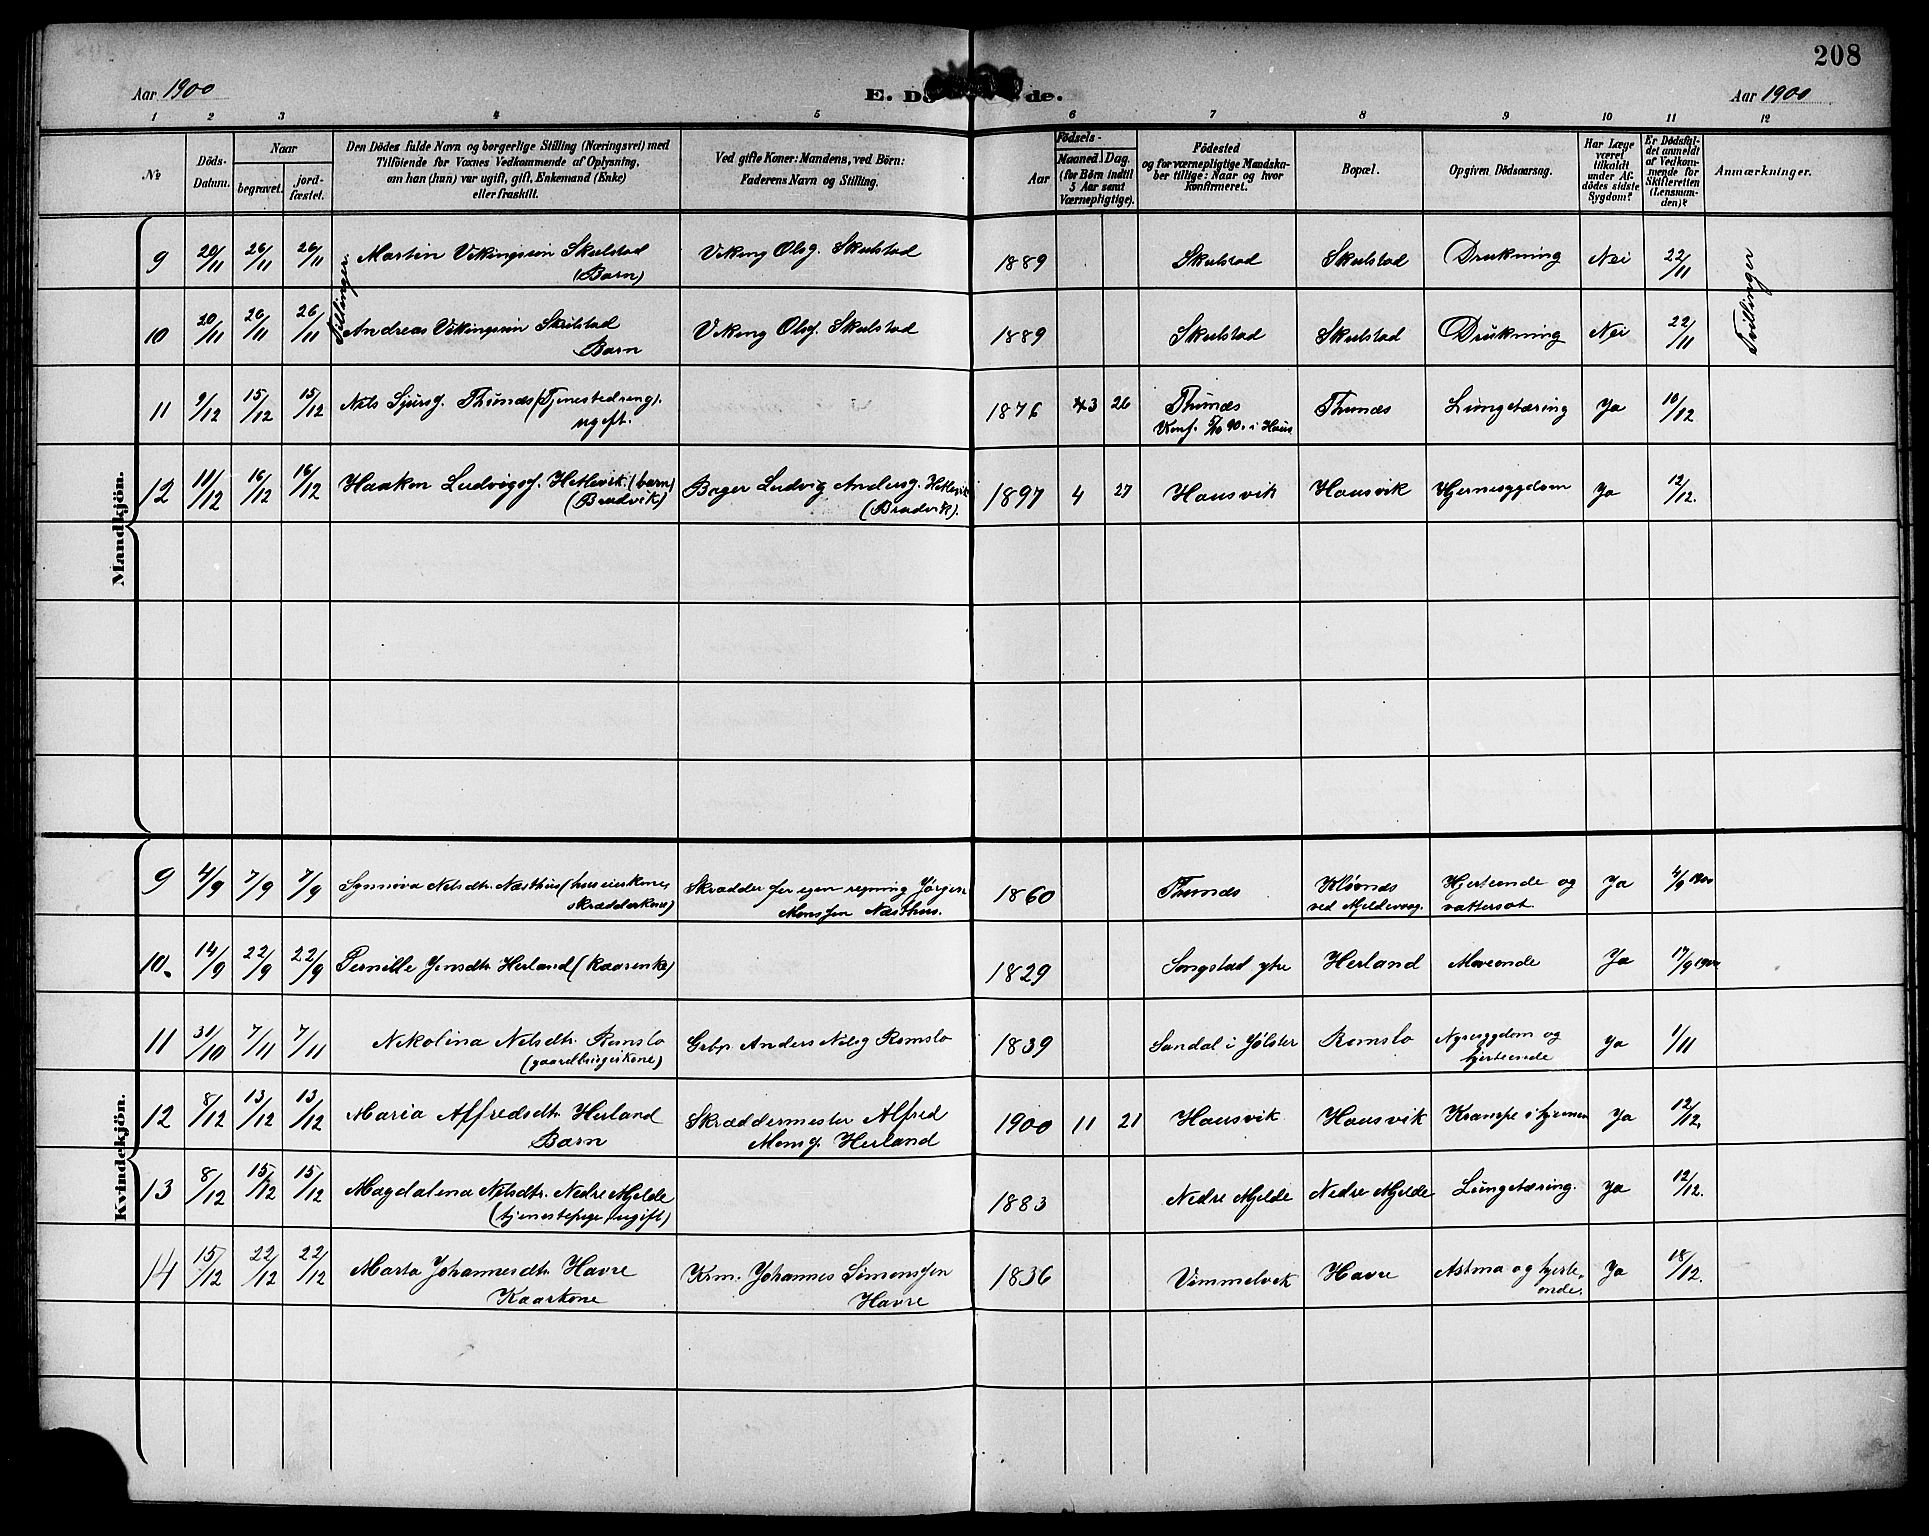 208
Aar 1900
E. Dö de.
Aar 1900
1 2 3 4 5 6 7 8 9 10 11 12
№
Döds-Datum.
Naar
begravet.
jord-fæstet.
Den Dödes fulde Navn og borgerlige Stilling (Næringsvei) med
Tilföiende for Voxnes Vedkommende af Oplysning,
om han (hun) var ugift, gift, Enkemand (Enke)
eller fraskilt.
Ved gifte Koner: Mandens, ved Börn:
Faderens Navn og Stilling.
Födsels-
Aar
Maaned. Dag.
(for Börn indtil
5 Aar samt
Værnepligtige).
Födested
og for værnepligtige Mandska-
ber tillige: Naar og hvor
konfirmeret.
Bopæl.
Opgiven Dödsaarsag.
Har Læge
været
tilkaldt
under Af-
dödes sidste
Sygdom?
Er Dödsfal-
det anmeldt
af Vedkom-
mende for
Skifteretten
(Lensman-
den)?
Anmærkninger.
Mandkjön.
9 20/11 26/11 26/11 Martin Vikingssøn Skulstad Viking Olsf. Skulstad 1889 Skulstad Skulstad Drukning Nei 22/11
(Barn)
Tvillinger.
Tvillinger
10 20/11 26/11 26/11 Andreas Vikingssøn Skulstad Viking Olsf. Skulstad 1889 Skulstad Skulstad Drukning Nei 22/11
Barn
11 9/12 15/12 15/12 Nils Sjursf. Thunæs (Tjenestedreng). 1876 3 26 Thunæs Thunæs Lungetæring Ja 10/12
ugift. Konf. 90. i Haus
12 10/12 16/12 16/12 Haakon Ludvigsf. Hetlevik (barn) Bager Ludvig Andersf. Hetlevik 1897 4 27 Hausvik Hausvik Hjernesygdom Ja 12/12.
(Bradvik) (Bradvik).
Kvindekjön.
9 4/9 7/9 7/9 Synnøva Nilsdtr. Næsthus (huseierkone, Skrædder for egen regning Jørgen 1860 Thunæs Kløvnæs Hjerteonde og Ja 4/9 1900
skrædderkone) Monssen Næsthus. ved Mjeldevaag. vattersot.
10. 14/9 22/9 22/9 Pernille Jensdtr. Herland (kaarenke) 1829 Songstad ytre Herland Maveonde Ja 17/9 1900
11 31/10 7/11 7/11 Nikolina Nilsdtr. Romslo Grbr. Anders Nilsf Romslo 1839 Sandal i Jølster Romslo Nyresygdom og Ja 1/11
(gaardbrugerkone) hjerteonde
12 8/12 13/12 13/12 Maria Alfredsdtr. Herland Skræddermester Alfred 1900 11 21 Hausvik Hausvik Krampe i hjernen Ja 12/12.
Barn Monsf. Herland
13 8/12 15/12 15/12 Magdalena Nilsdtr. Nedre Mjelde 1883 Nedre Mjelde Nedre Mjelde Lungetæring. Ja 12/12.
(tjenestepige, ugift)
14 15/12 22/12 22/12 Marta Johannesdtr. Havre Krm. Johannes Simonssen 1836 Vimmelvik Havre Astma og hjerte- Ja 18/12.
Kaarkone Havre onde.